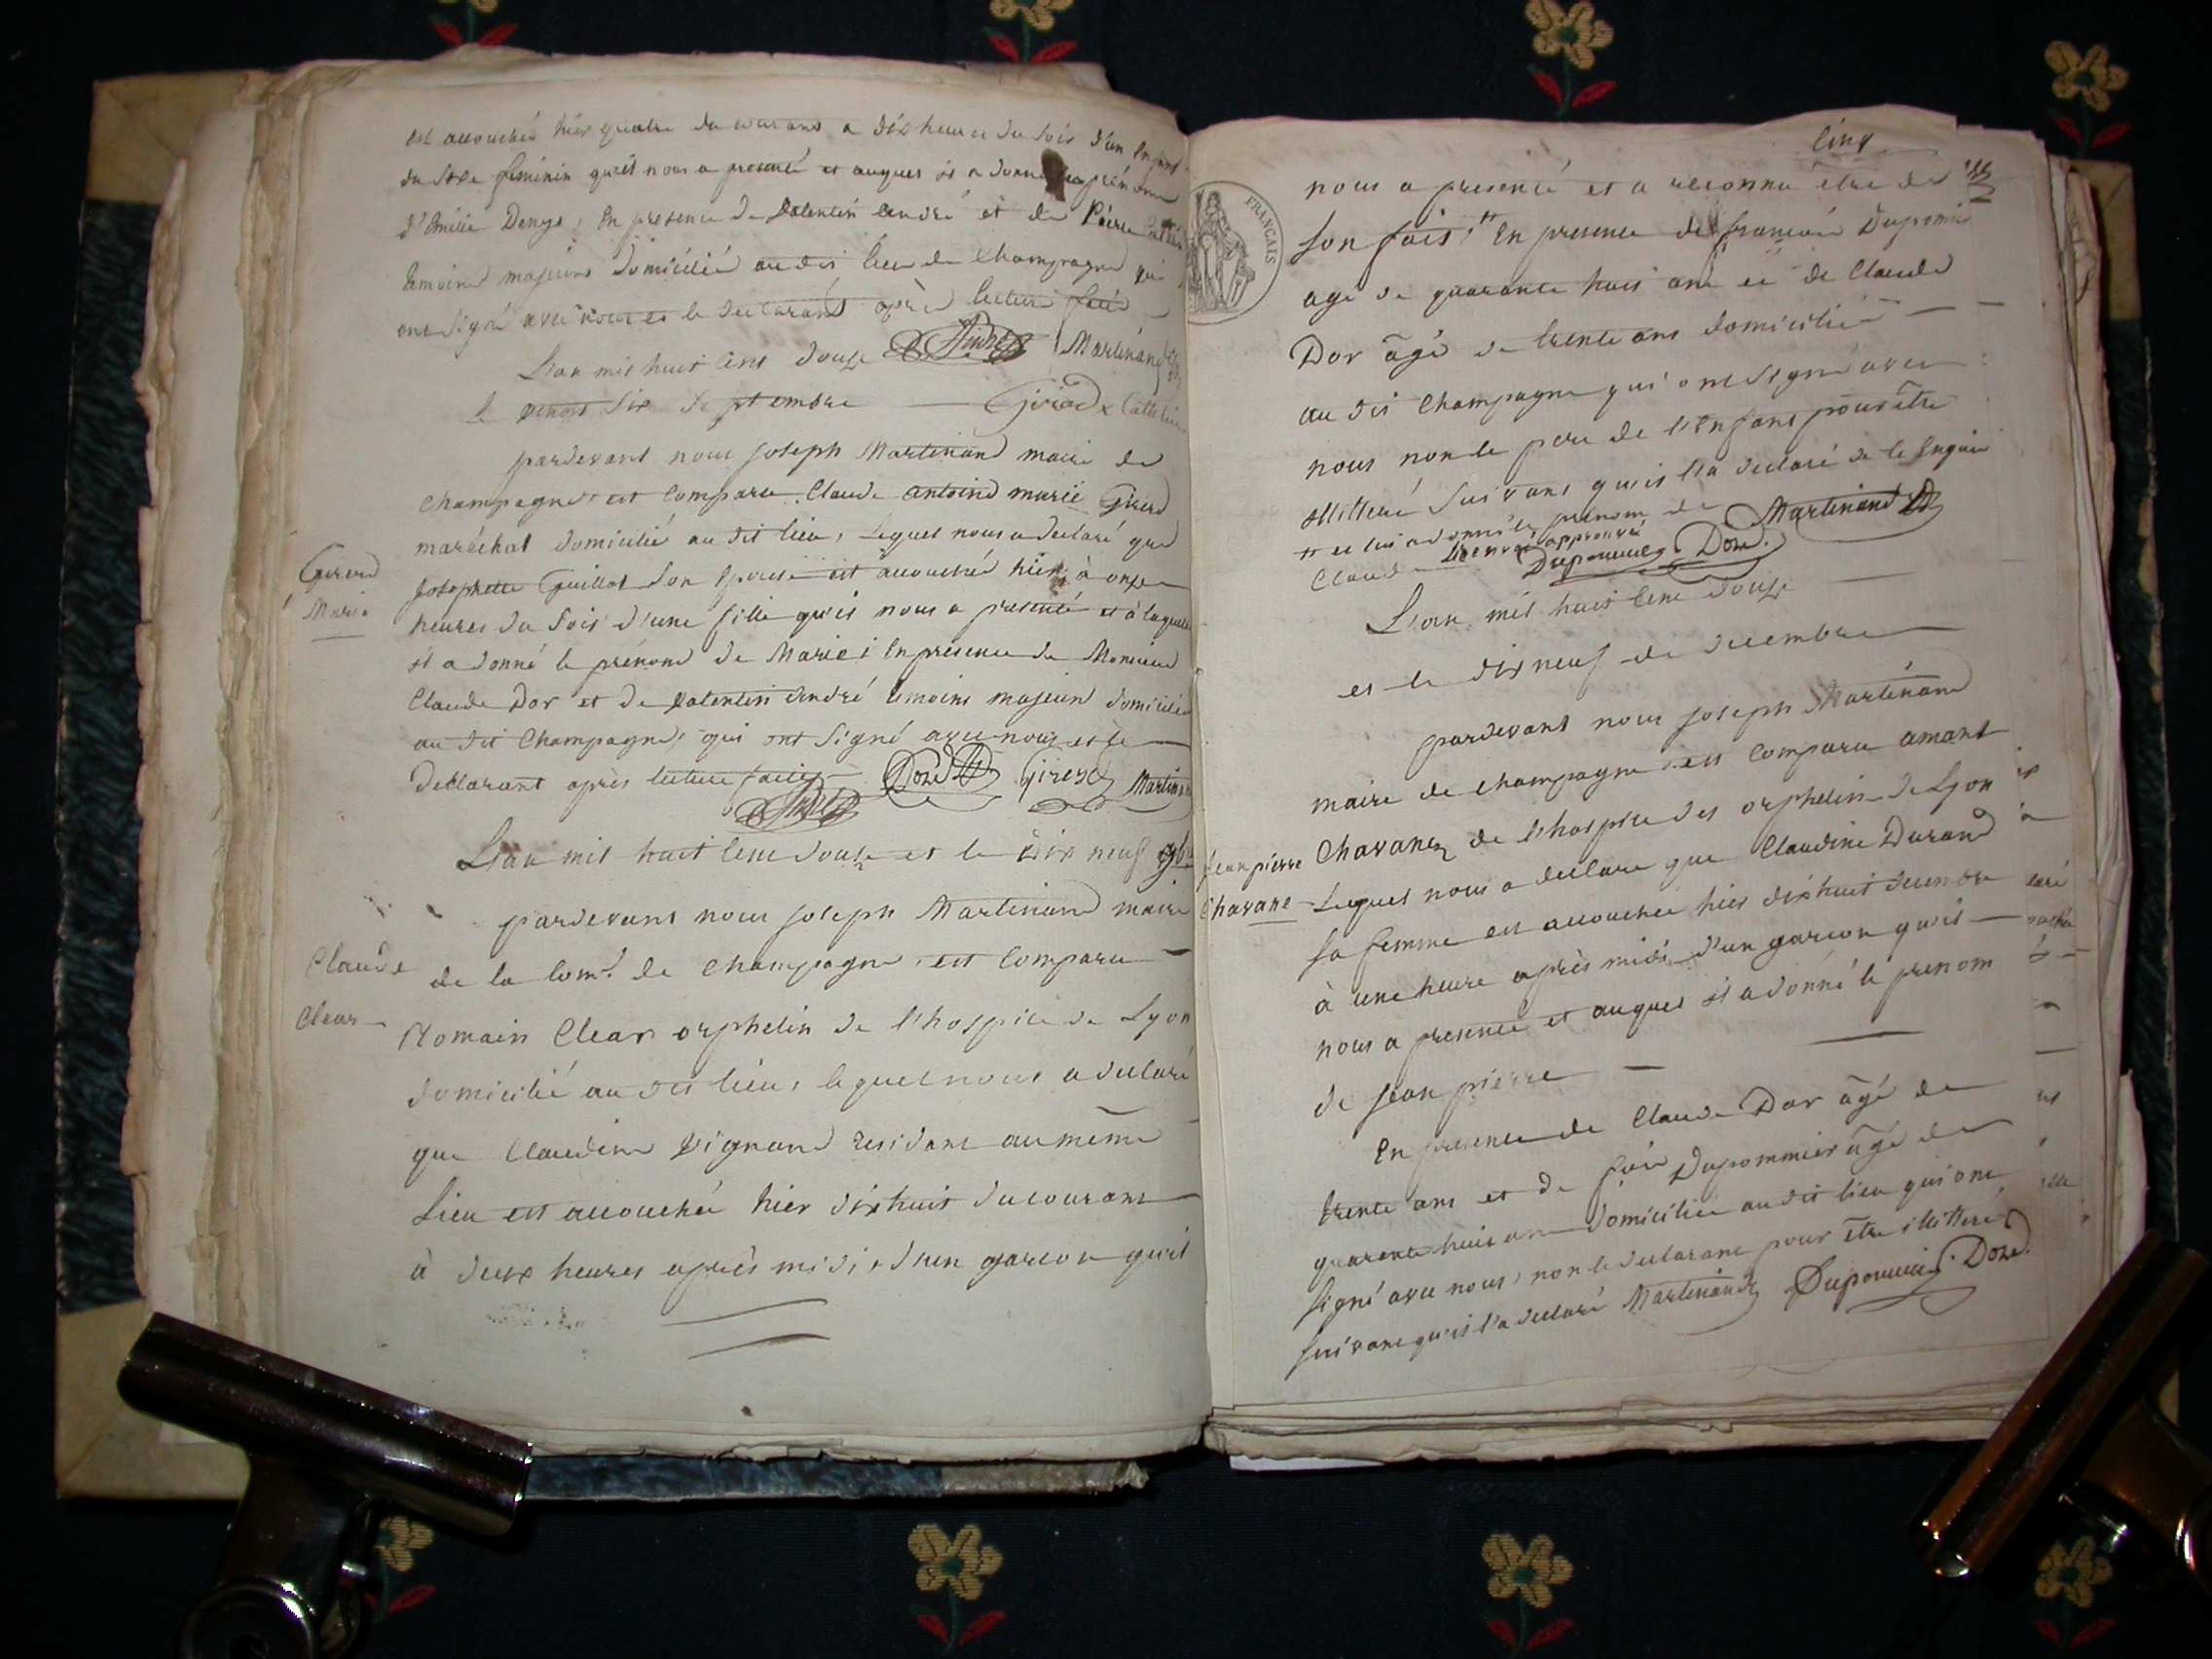 est accouchée hier quatre du courant a dix heures du soir d'un enfant
du sexe feminin qu'il nous a presenté et auquel il a donné le prénom
d'Emilie Denyse, En presence de Valentin André et de Pierre
temoins majeurs domiciliés au dit lieu de Champagne qui
ont signé avec nous et le declarant après lecture faite
L'an mil huit cent douze André Martinand
le six septembre Girod
pardevant nous joseph Martinand maire de
Champagne est comparu Claude antoine marie Girerd
maréchal domicilié au dit lieu, lequel nous a declaré que
Girerd
Marie
josephette Guillot son épouse est accouchée hier à onze
heures du soir d'une fille qu'il nous a presenté et à laquelle
il a donné le prénom de Marie; En présence de Monsieur
Claude Dor et de Valentin André temoins majeurs domiciliés
au dit Champagne, qui ont signé avec nous et le
declarant après lecture faite Doze Girerd Martinand
André
L'an mil huit cent douze et le dix neuf 9bre
pardevant nous joseph Martinand maire
Claude
Clear
de la Com.e de Champagne, est comparu
Romain Clear orphelin de l'hospice de Lyon
domicilié au dit lieu, lequel nous a declaré
que Claudine Vignand residant au même
Lieu est accouchée hier dixhuit du courant
à deux heures après midi, d'un garcon qu'il
Cinq
FRANÇAIS
nous a presenté et a reconnu être de
son fait, # En presence de francois Dupomier
agé de quarante huit ans et de Claude
Dor âgé de trente ans domiciliés
au dit Champagne qui ont signé avec
nous non le pere de l'Enfant pour être
illitteré suivant qu'il l'a declaré de le Enquis
# et lui a donné le prenom de Martinand
Claude approuvé Dupommier Doze.
L'an mil huit cent douze
et le dix neuf de decembre
pardevant nous joseph Martinand
maire de champagne est comparu amant
jean pierre
Chavane
Chavane de l'hospice des orphelins de Lyon
Lequel nous a declare que Claudine Durand
sa femme est accouchée hier dixhuit decembre
à une heure après midi d'un garcon qu'il
nous a presenté et auquel il a donné le prenom
de jean pierre
En presence de Claude Dor âgé de
trente ans et de fois Dupommier âgé de
quarante huit ans domiciliés au dit lieu qui ont
signé avec nous, non le declarant pour être illitteré
suivant qu'il l'a declaré Martinand Dupommier Doze.